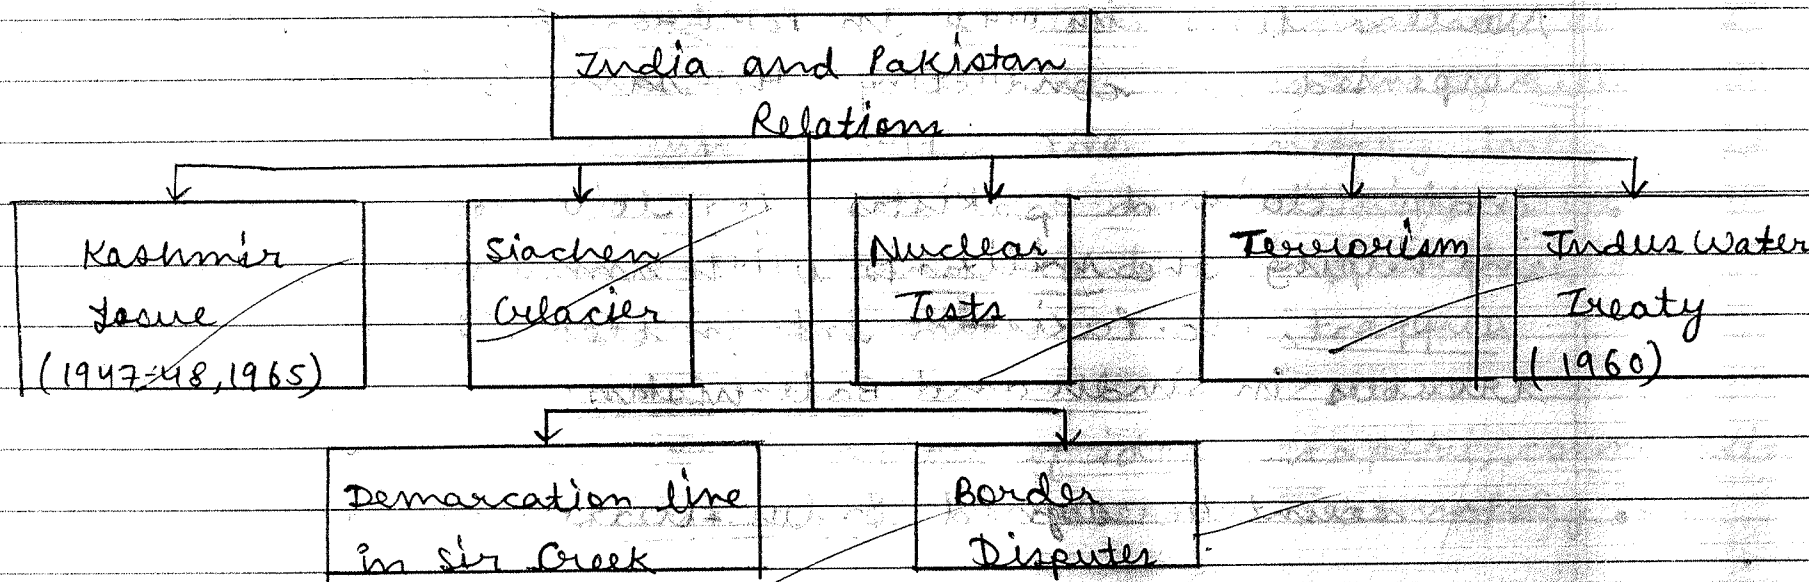 India and Pakistan
Relations
Kashmir
Issue
(1947-48, 1965)
Siachen
Glacier
Nuclear
Tests
Terrorism
Indus Water
Treaty
(1960)
Demarcation line
in Sir Creek
Border
Disputes